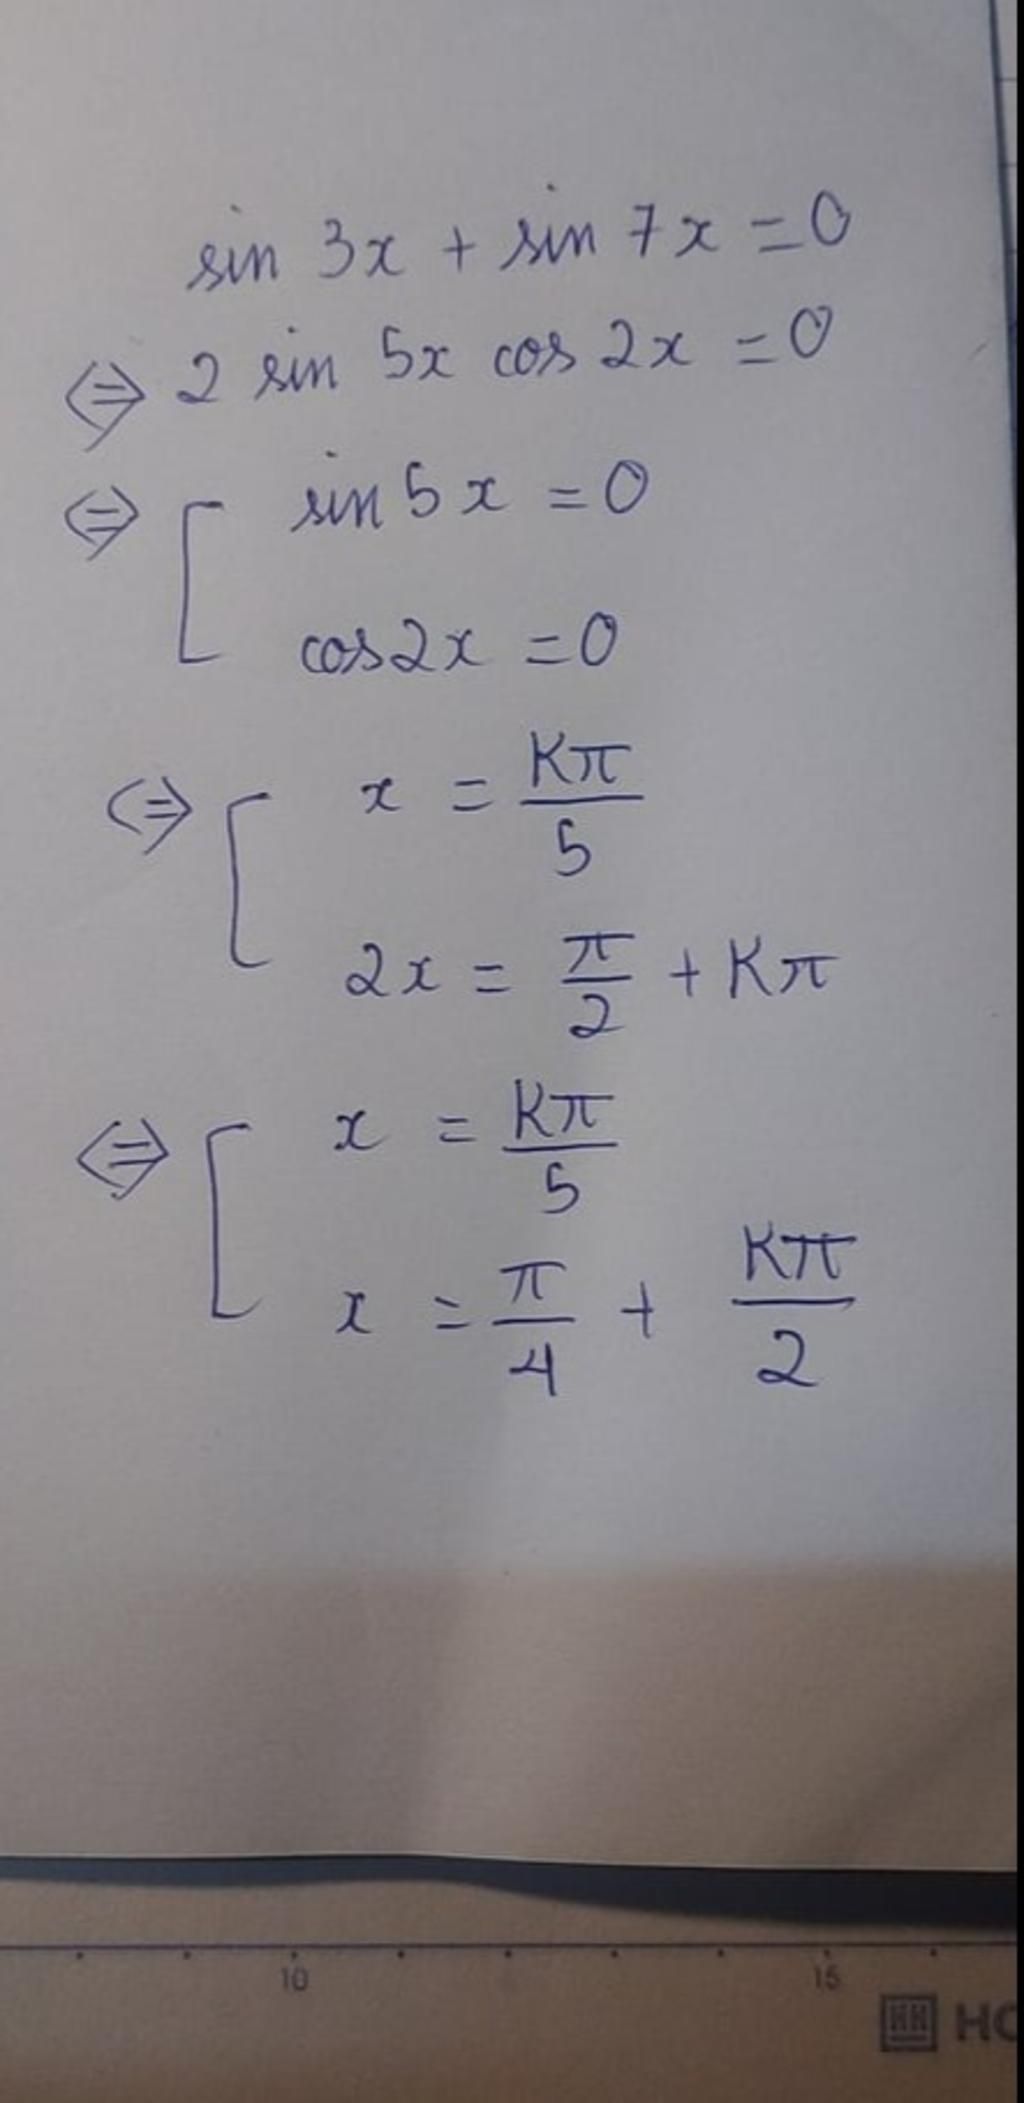 sin 3x + sin 7x = 0
⇔ 2 sin 5x cos 2x = 0
⇔ [ sin 5x = 0
cos 2x = 0
⇔ [ x = Kπ/5
2x = π/2 + Kπ
⇔ [ x = Kπ/5
x = π/4 + Kπ/2
10 15
HC